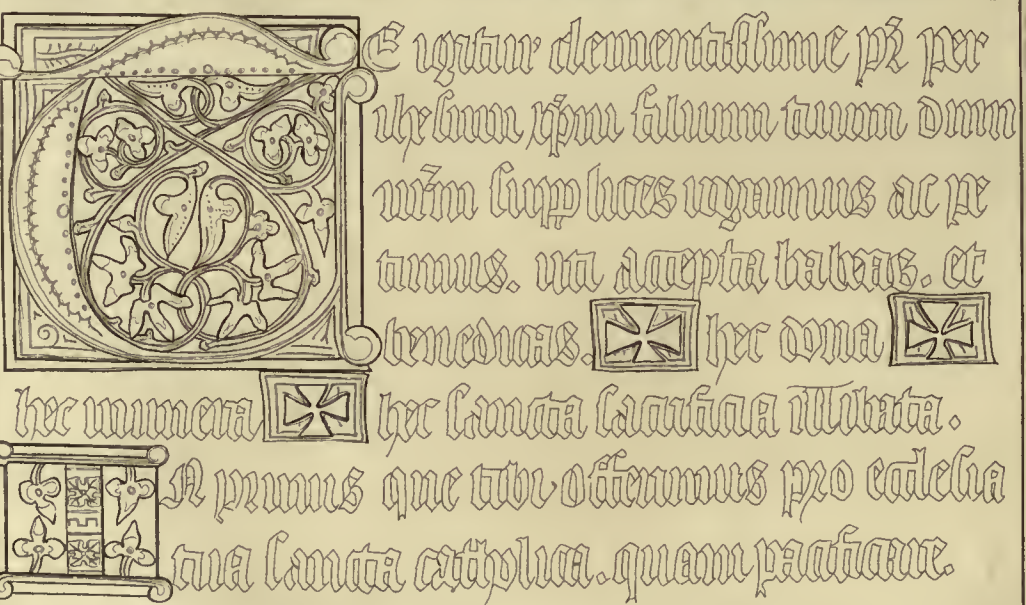 TE igitur clementissime pr̄ per
ihesum xp̄m filium tuum dnm
nr̄m supplices rogamus ac pe
timus. uti accepta habeas. et
benedicas. ✠ hec dona ✠
hec munera ✠ hec sancta sacrificia illibata.
IN primis que tibi offerimus pro ecclesia
tua sancta catholica. quam pacificare.